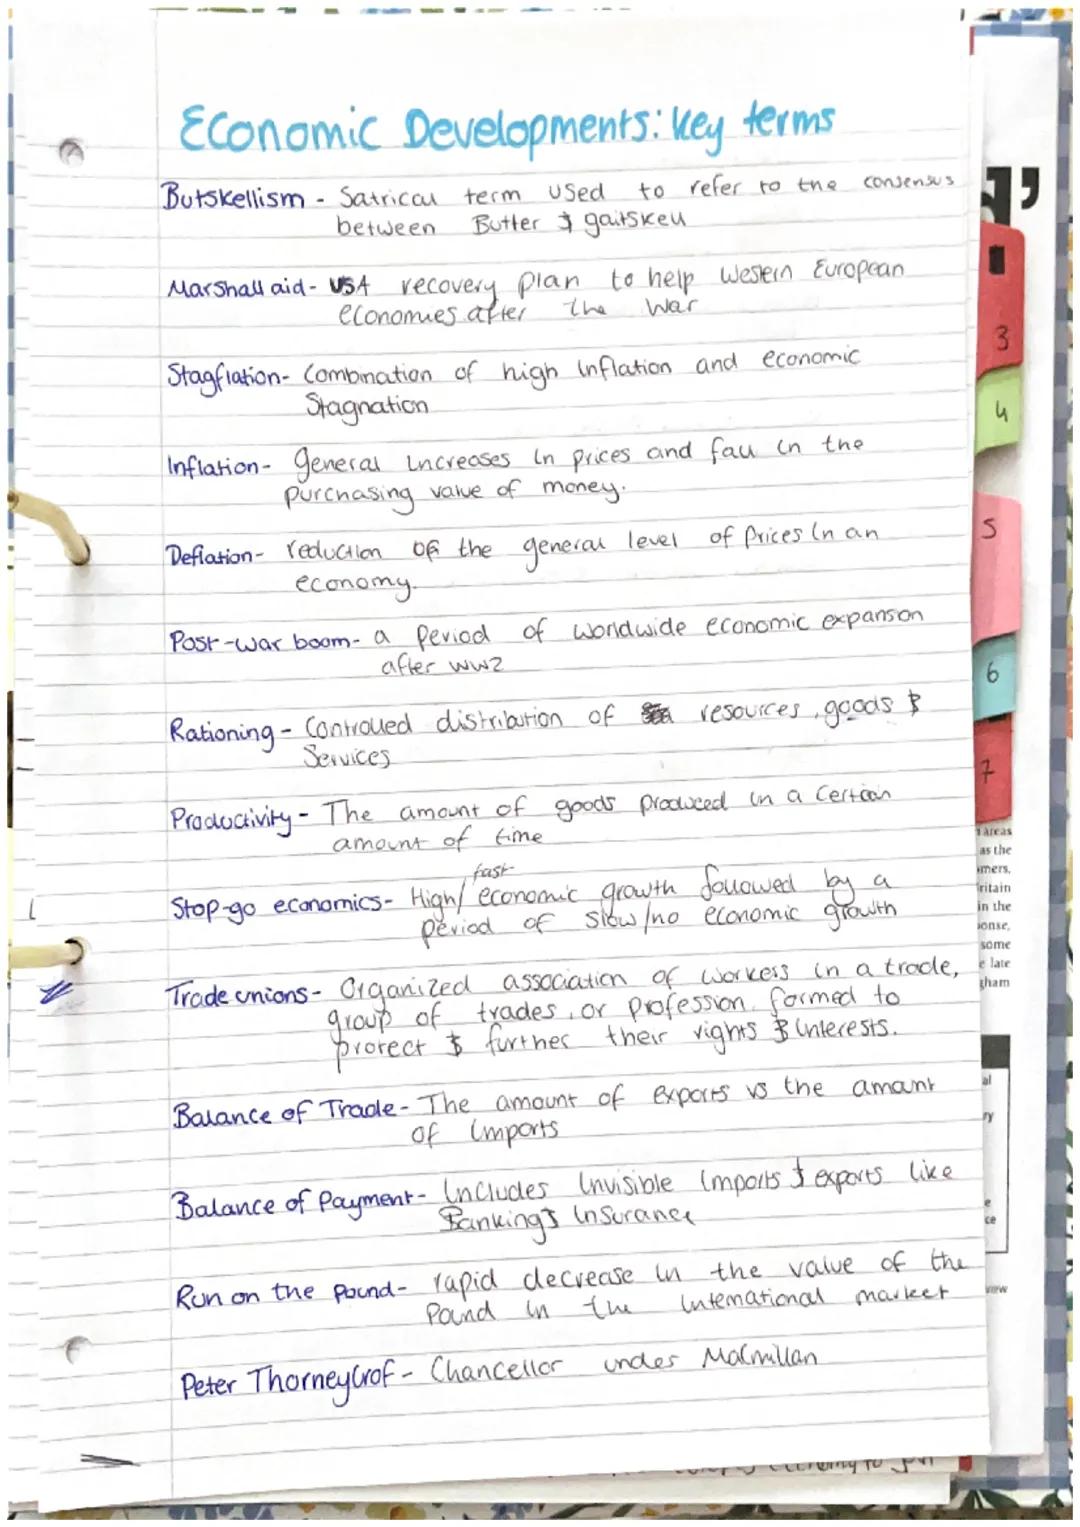 Economic Developments: key terms
Butskellism - Satrical term used to refer to the consensus
between Butler & gaitskell
Marshall aid - USA recovery plan to help Western European
economies after the war
Stagflation - Combination of high inflation and economic
Stagnation
Inflation - general increases in prices and fall in the
purchasing value of money.
Deflation - reduction of the general level of prices in an
economy.
Post-war boom - a period of worldwide economic expanson
after ww2
Rationing - Controlled distribution of resources, goods &
Services
Productivity - The amount of goods produced in a certain
amount of time
fast
Stop-go economics - High/ economic growth followed by a
period of slow/no economic growth
Trade unions - Organized association of workers in a trade,
group of trades, or profession, formed to
protect & further their rights & interests.
Balance of Trade - The amount of exports vs the amount
of imports
Balance of Payment - includes invisible imports & exports like
Banking & insurance
Run on the pound - rapid decrease in the value of the
Pound in the international market
Peter Thorneycrof - Chancellor under Macmillan
3
4
5
6
7
areas
as the
mers,
ritain
in the
onse,
some
e late
gham
al
ry
e
ce
view